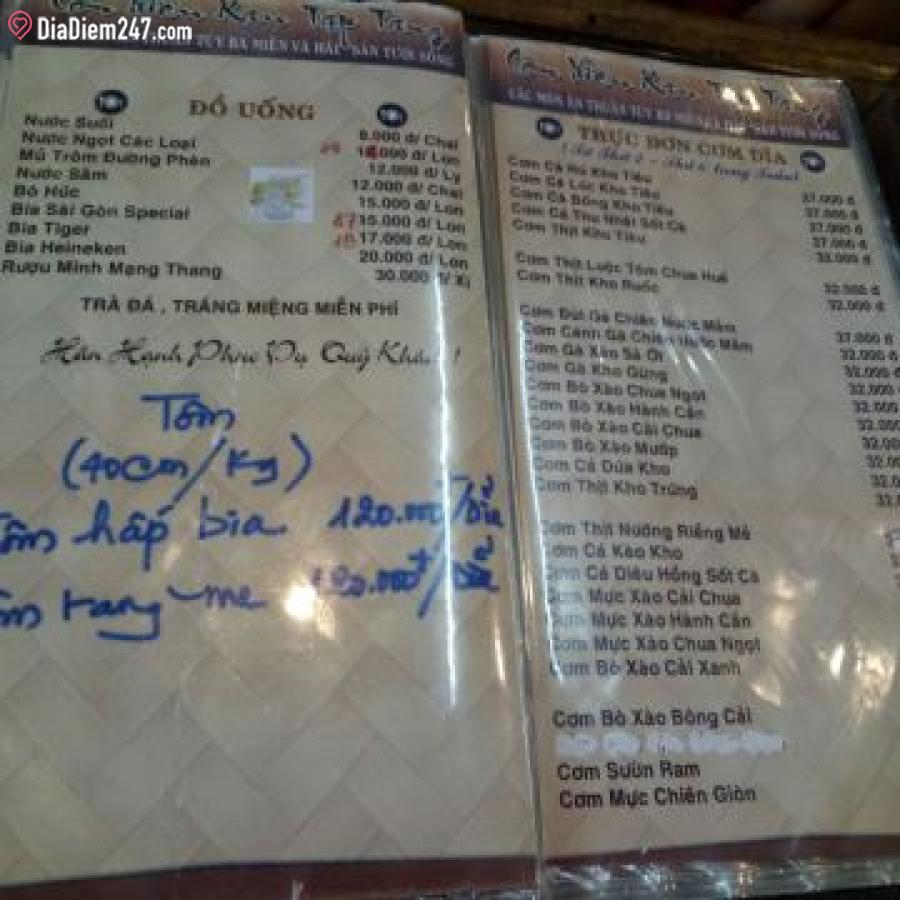 DiaDiem247.com
ĐỒ UỐNG
Nước Suối 8.000 đ/ Chai
Nước Ngọt Các Loại 000 đ/ Lon
Mủ Trôm Đường Phèn 12.000 đ/ Ly
Nước Sâm 12.000 đ/ Chai
Bò Húc 15.000 đ/ Lon
Bia Sài Gòn Special 15.000 đ/ Lon
Bia Tiger 17.000 đ/ Lon
Bia Heineken 20.000 đ/ Lon
Rượu Minh Mạng Thang 30.000 đ/ Xị
TRÀ ĐÁ , TRÁNG MIỆNG MIỄN PHÍ
Hân Hạnh Phục Vụ Quý Khách !
Tôm
(40con/Kg)
Tôm hấp bia 120.000đ/dĩa
rang me
CÁC MÓN ĂN THUẦN TÚY BA MIỀN VÀ HẢI SẢN TƯƠI SỐNG
THỰC ĐƠN CƠM DĨA
(Từ Thứ 2 - Thứ 6 trong tuần)
Cơm Cá Hú Kho Tiêu 37.000 đ
Cơm Cá Lóc Kho Tiêu 37.000 đ
Cơm Cá Bống Kho Tiêu 37.000 đ
Cơm Cá Thu Nhật Sốt Cà 37.000 đ
Cơm Thịt Kho Tiêu 32.000 đ
Cơm Thịt Luộc Tôm Chua Huế 32.000 đ
Cơm Thịt Kho Ruốc 32.000 đ
Cơm Đùi Gà Chiên Nước Mắm 37.000 đ
Cơm Cánh Gà Chiên Nước Mắm 32.000 đ
Cơm Gà Xào Sả Ớt 32.000 đ
Cơm Gà Kho Gừng 32.000
Cơm Bò Xào Chua Ngọt 32.000
Cơm Bò Xào Hành Cần 32.000
Cơm Bò Xào Cải Chua 32.00
Cơm Bò Xào Mướp 32.0
Cơm Cá Dứa Kho 32.0
Cơm Thịt Kho Trứng 32.
Cơm Thịt Nướng Riềng Mẻ
Cơm Cá Kèo Kho
Cơm Cá Diêu Hồng Sốt Cà
Cơm Mực Xào Cải Chua
Cơm Mực Xào Hành Cần
Cơm Mực Xào Chua Ngọt
Cơm Bò Xào Cải Xanh
Cơm Bò Xào Bông Cải
Cơm Sườn Ram
Cơm Mực Chiên Giòn